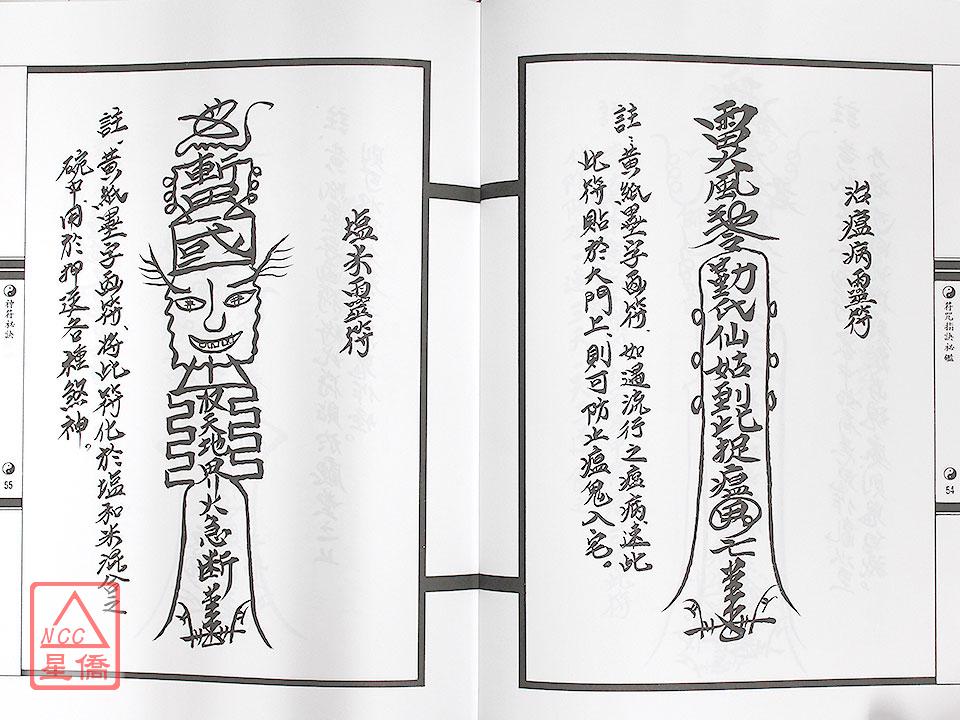 符咒指訣秘鑑
54
治瘟病靈符
雷火風
勤氏仙姑到此捉瘟
註、黃紙墨字画符、如遇流行之瘟病、速此
此符貼於大門上、則可防止瘟鬼入宅。
塩米靈符
天地
火急断
註、黃紙墨字画符、將此符化於塩和米混合之
碗中、用於押送各種煞神。
符秘訣
55
NCC
星僑